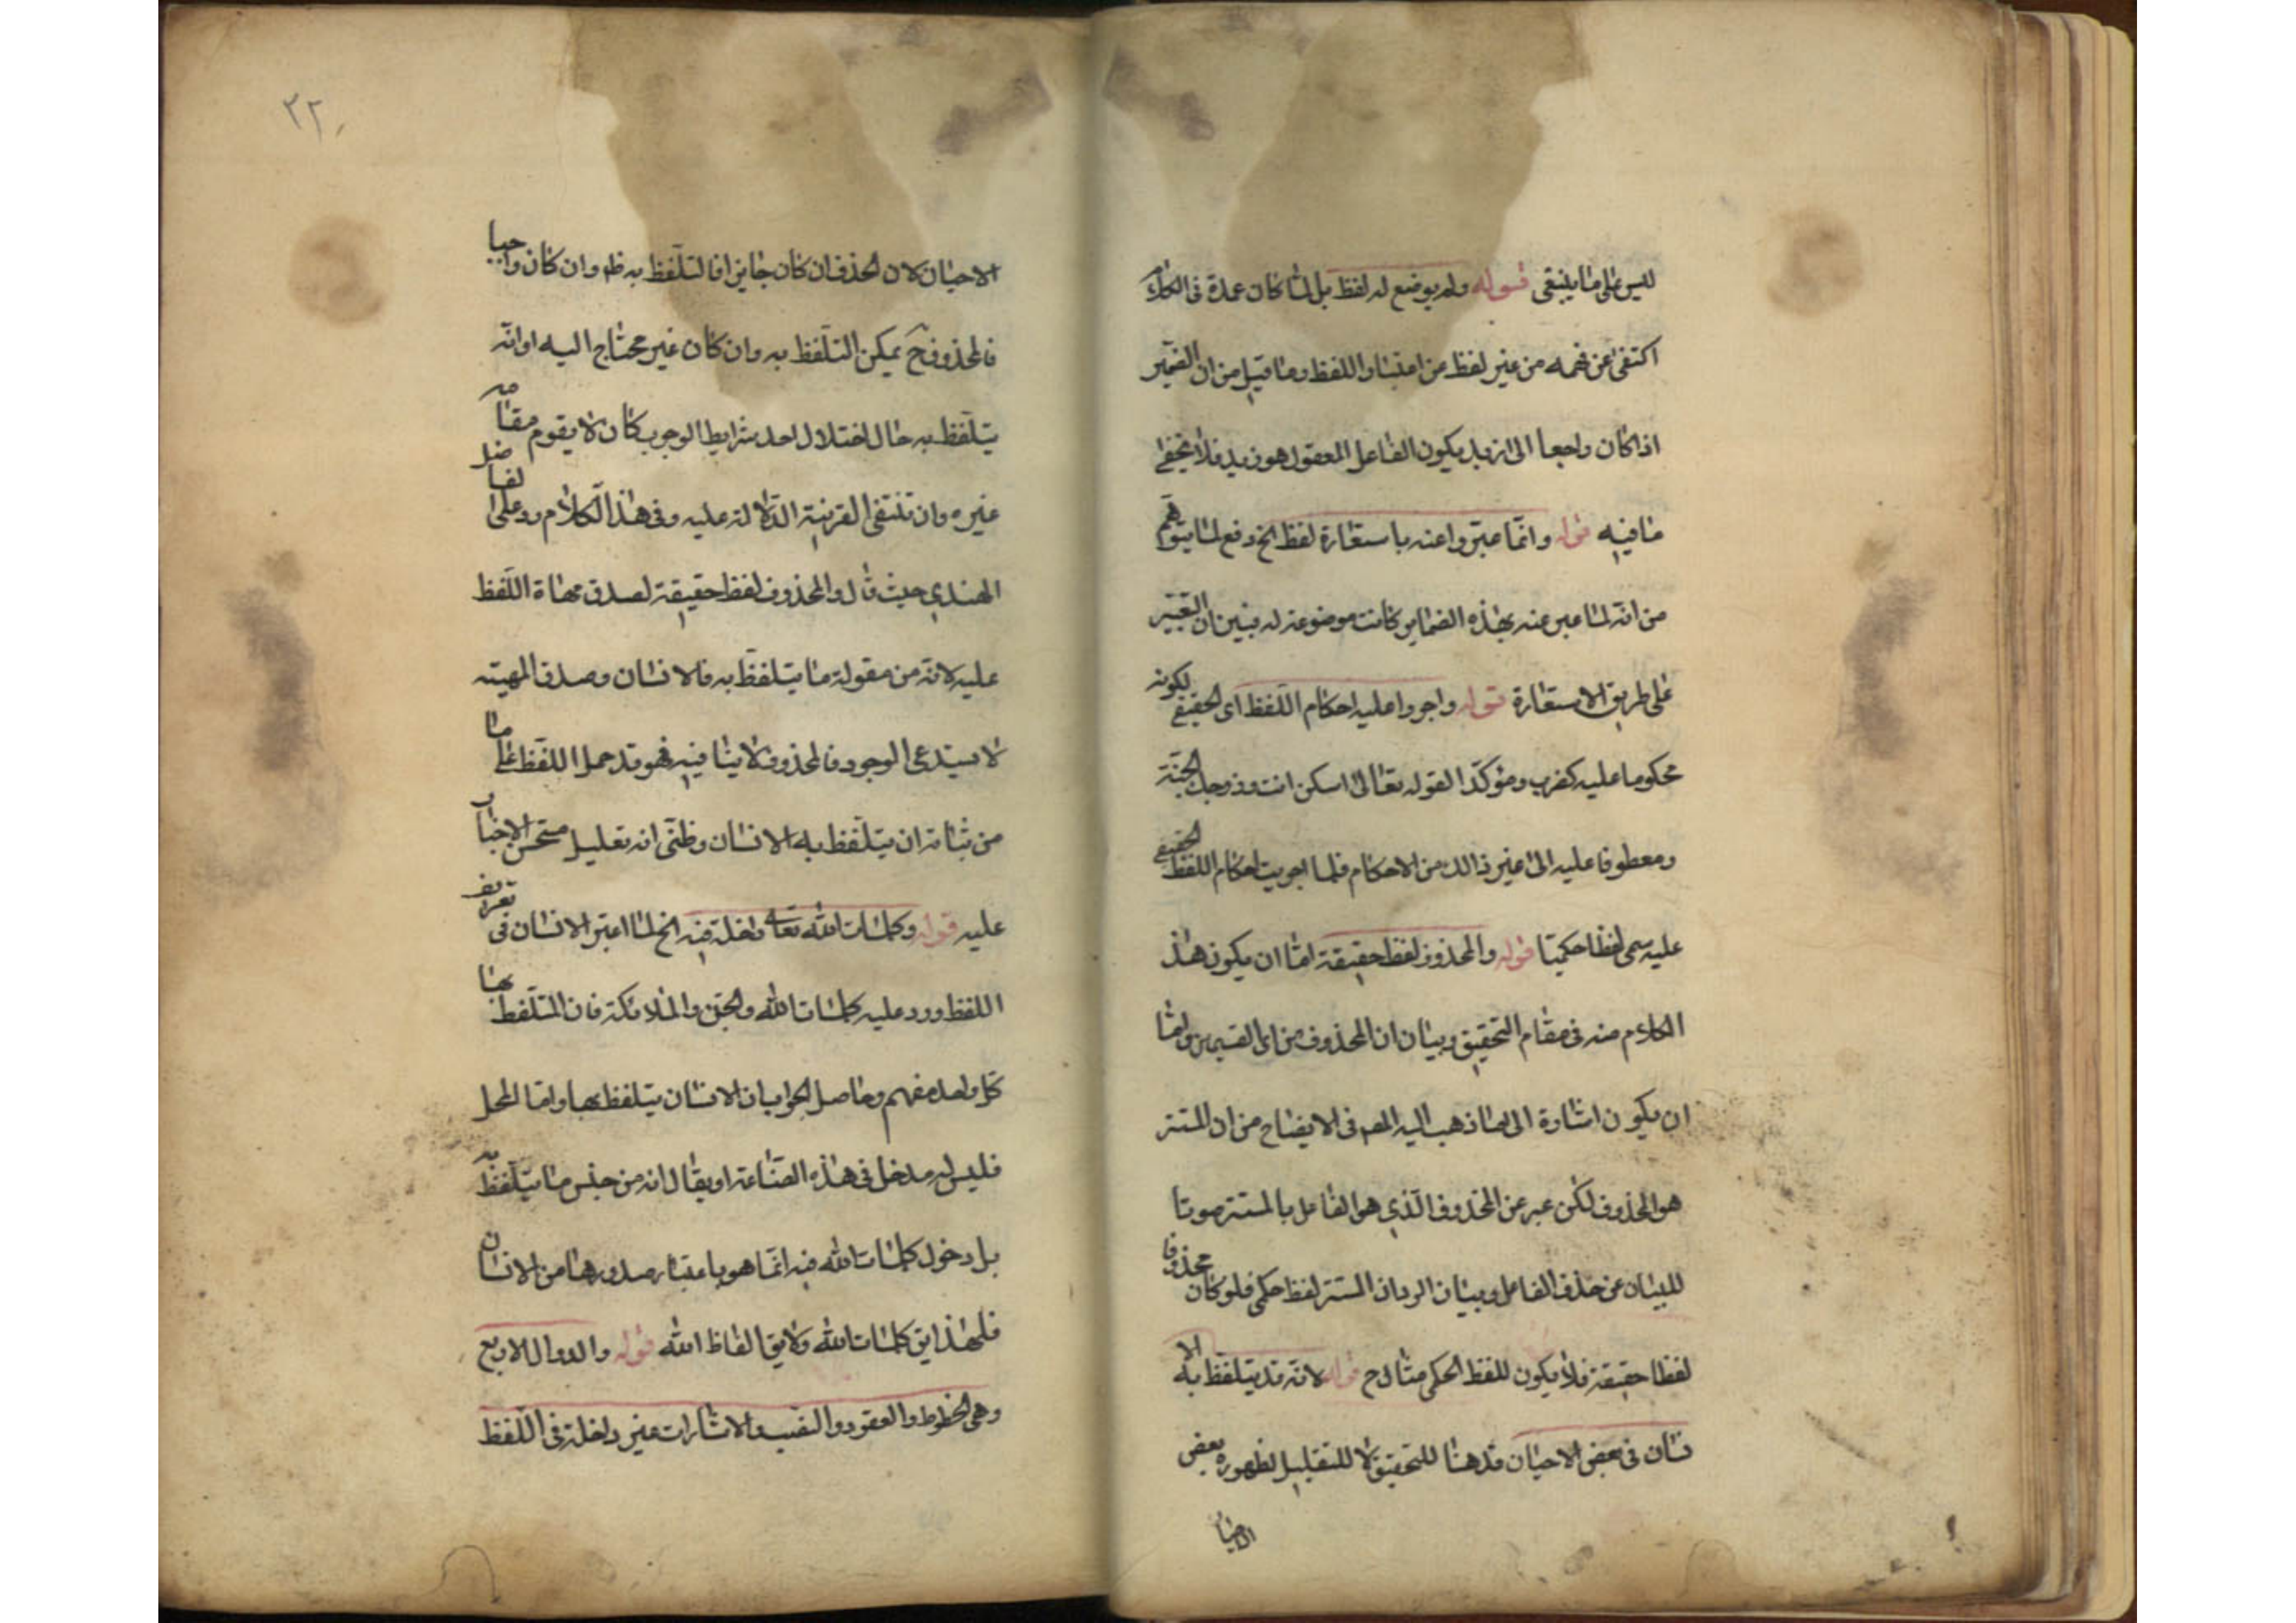 ليس على ما ينبغى قوله ولم يوضع له لفظ بل لما كان عمدة فى الكلام
اكتفى عن فهمه من غير لفظ من اعتبار اللفظ وما قيل من ان الضمير
اذا كان راجعا الى زيد يكون الفاعل المعقول هو زيد فلا يخفى
ما فيه قوله وانما عبروا عنه باستعارة لفظ الخ دفع لما يتوهم
من انه لما عبر عنه بهذه الضماير كانت موضوعة له فبين ان التعبير
على طريق الاستعارة قوله واجروا عليه احكام اللفظ اى الحقيقى لكونه
محكوما عليه كضرب ومؤكدا لقوله تعالى اسكن انت وزوجك الجنة
ومعطوفا عليه الى غير ذالك من الاحكام فلما اجريت احكام اللفظ الحقيقى
عليه سمى لفظا حكميا قوله والمحذوف لفظ حقيقة اما ان يكون هذا
الكلام منه فى مقام التحقيق وبيان ان المحذوف من اى القسمين واما
ان يكون اشارة الى ما ذهب اليه المصم فى الايضاح من ان المستتر
هو المحذوف لكن عبر عن المحذوف الذي هو الفاعل بالمستتر صونا
للبيان عن حذف الفاعل وبيان الرد ان المستتر لفظ حكمى فلو كان محذوفا
لفظا حقيقة فلا يكون للفظ الحكمى مثال ح قوله لانه قد يتلفظ به الا
نسان فى بعض الاحيان قد هنا للتحقيق لا للتقليل لظهوره بعض
الاحيا
٢٢
الاحيان لان الحذف ان كان جايزا فالتلفظ به ظ وان كان واجبا
فالمحذوف ح يمكن التلفظ به وان كان غير محتاج اليه او انه
يتلفظ به حال اختلال احد شرايط الوجوب كان لا يقوم مقامه
غيره وان تنتفى القرينة الدالة عليه وفى هذا الكلام رد على الفاضل
الهندي حيث قال والمحذوف لفظ حقيقة لصدق مهاة اللفظ
عليه لانه من مقولة ما يتلفظ به فالانسان وصدق المهية
لا يستدعى الوجود فالمحذوف لا ينافيه فهو قد حمل اللفظ على ما
من شانه ان يتلفظ به الانسان وظنى انه تعليل مستحسن الاخبار
عليه قوله وكلمات الله تعالى داخلة فيه الخ لما اعتبر الانسان فى تعريف
اللفظ ورد عليه كلمات الله والجن والملائكة فان المتلفظ بها
كل واحد منهم وحاصل الجواب ان الانسان يتلفظ بها واما المحل
فليس له مدخل فى هذه الصناعة او يقال انه من جنس ما يتلفظ به
بل دخول كلمات الله فيه انما هو باعتبار صدورها من الانسان
فلهذا يق كلمات الله ولا يق الفاظ الله قوله والدوال الاربع
وهى الخطوط والعقود والنصب والاشارات غير داخلة فى اللفظ